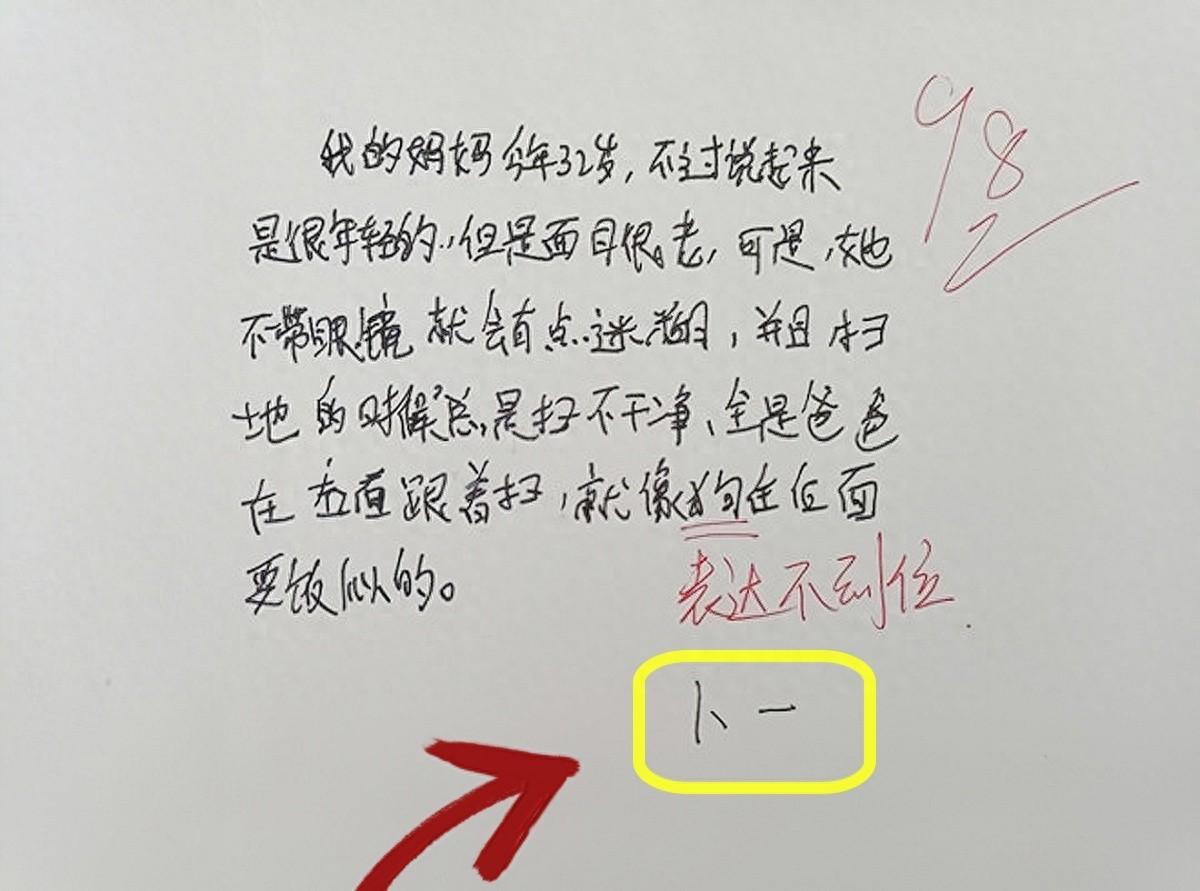 98
我的妈妈今年32岁,不过说起来
是很年轻的,但是面目很老,可是,她
不带眼镜就会有点迷糊,并且扫
地的时候总是扫不干净、全是爸爸
在跟着扫,就像狗在后面
要饭似的。
表达不到位
卜一